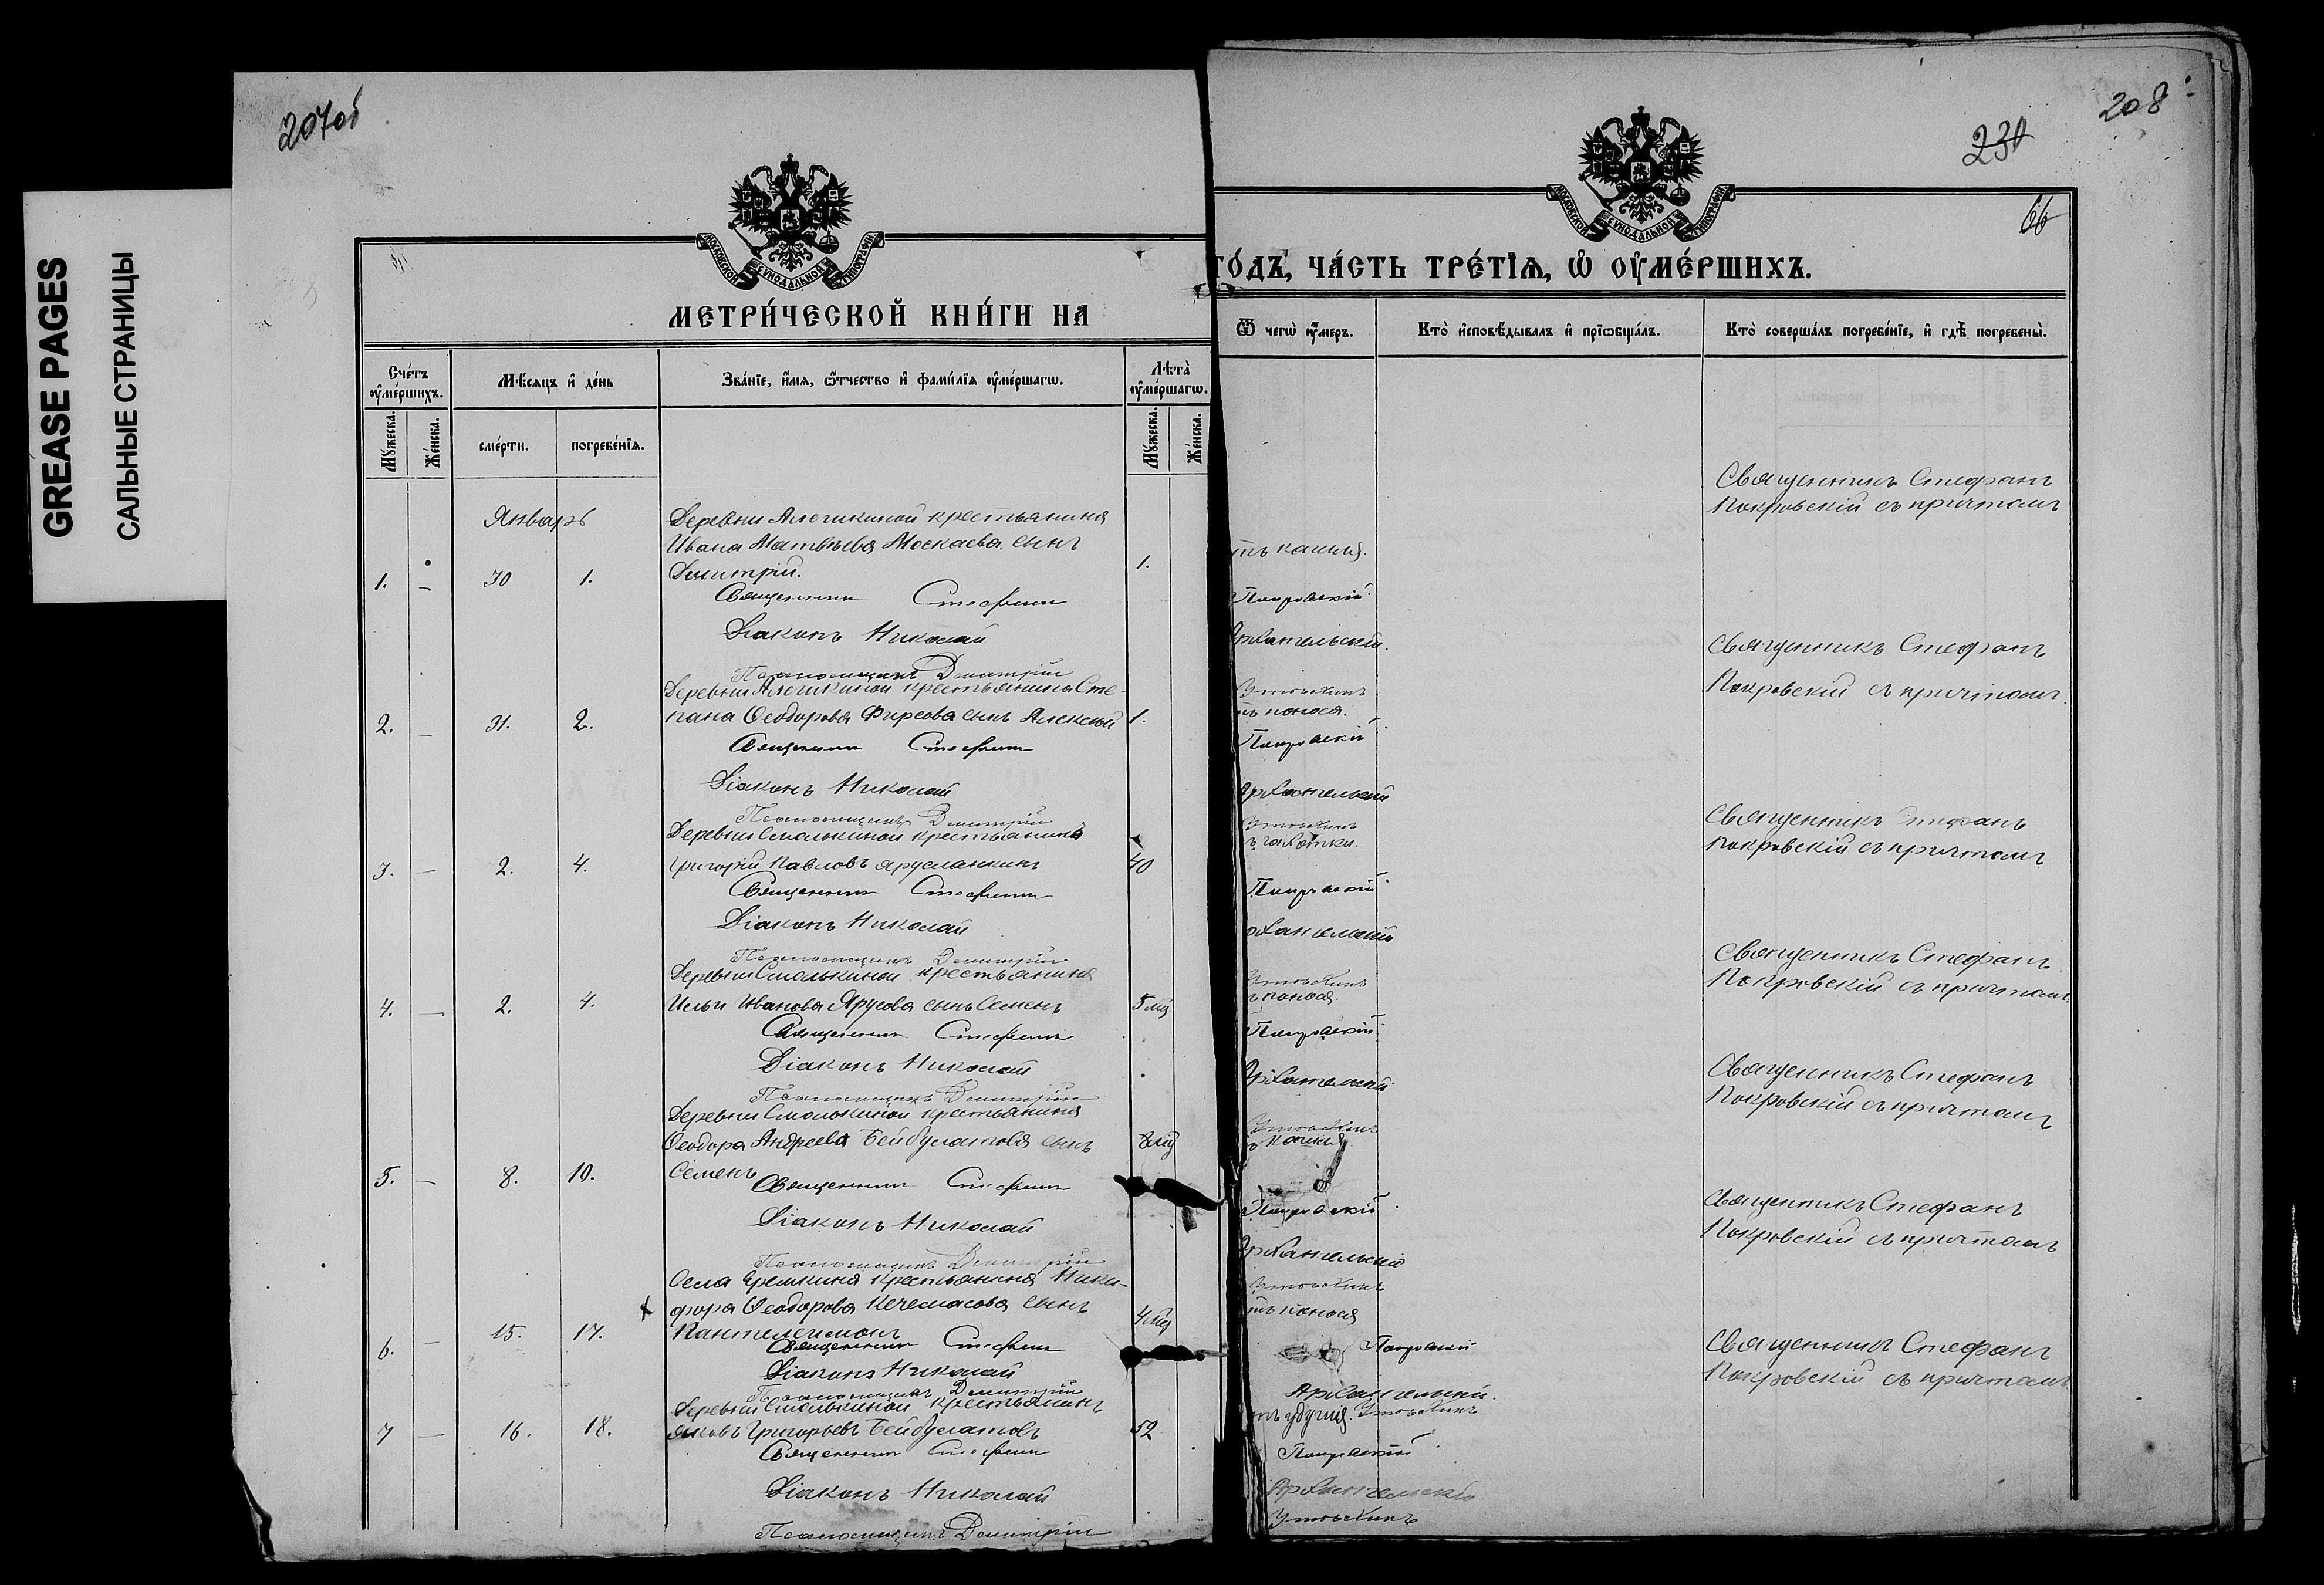 GREASE PAGES
САЛЬНЫЕ СТРАНИЦЫ
207об
МОСКОВСКОЙ СѴНОДАЛЬНОЙ ТИПОГРАФІИ
МЕТРИ́ЧЕСКОЙ КНИ́ГИ НА
Сче́тъ ᲂу҆ме́ршихъ.
Мѣ́сѧцъ и҆ де́нь
Зва́нїе, и҆́мѧ, ѻ҆́тчество и҆ фами́лїѧ ᲂу҆ме́ршагѡ.
Лѣ́та ᲂу҆ме́ршагѡ.
Мꙋ́жеска.
Же́нска.
сме́рти.
погребе́нїѧ.
Мꙋ́жеска.
Же́нска.
Январь
Деревни Алешкиной крестьянина
Ивана Матвѣева Москаева сынъ
1. — 30 1. Димитрій. 1.
Священникъ Стефанъ
Діаконъ Николай
Псаломщикъ Димитрій
Деревни Алешкиной крестьянина Сте-
2. — 31. 2. пана Ѳеодорова Фирсова сынъ Алексѣй 1.
Священникъ Стефанъ
Діаконъ Николай
Псаломщикъ Димитрій
Деревни Смолькиной крестьянинъ
3. — 2. 4. Григорій Павловъ Ярусланкинъ 40
Священникъ Стефанъ
Діаконъ Николай
Псаломщикъ Димитрій
Деревни Смолькиной крестьянина
4. — 2. 4. Ильи Иванова Ярусова сынъ Семенъ 5 мц
Священникъ Стефанъ
Діаконъ Николай
Псаломщикъ Димитрій
Деревни Смолькиной крестьянина
Ѳеодора Андреева Бейбулатова сынъ
5. — 8. 10. Семенъ
Священникъ Стефанъ
Діаконъ Николай
Псаломщикъ Димитрій
Села Еремкина крестьянина Ники-
фора Ѳеодорова Кечемасова сынъ 4 мц
6. — 15. 17. Пантелеимонъ
Священникъ Стефанъ
Діаконъ Николай
Псаломщикъ Димитрій
Деревни Смолькиной крестьянинъ
7 — 16. 18. Яковъ Григорьевъ Бейбулатовъ 52
Священникъ Стефанъ
Діаконъ Николай
Псаломщикъ Димитрій
208
230
66
МОСКОВСКОЙ СѴНОДАЛЬНОЙ ТИПОГРАФІИ
ГО́ДЪ, ЧА́СТЬ ТРЕ́ТЇѦ, Ѽ ОУ҆МЕ́РШИХЪ.
Ѿ чегѡ̀ ᲂу҆́меръ.
Кто̀ и҆сповѣ́дывалъ и҆ прїѡбща́лъ.
Кто̀ соверша́лъ погребе́нїе, и҆ гдѣ̀ погребены̀.
Священникъ Стефанъ
Покровскій съ причтомъ
тъ кашля.
Покровскій
Архангельскій.
Священникъ Стефанъ
Покровскій съ причтомъ
тъ поноса.
Покровскій
Архангельскій
Священникъ Стефанъ
Покровскій съ причтомъ
ъ чахотки.
Покровскій
Архангельскій
Священникъ Стефанъ
Покровскій съ причтомъ
ъ поноса.
Покровскій
Архангельскій
Священникъ Стефанъ
Покровскій съ причтомъ
ъ кашля.
Покровскій
Архангельскій
Священникъ Стефанъ
Покровскій съ причтомъ
тъ поноса
Покровскій
Архангельскій.
Священникъ Стефанъ
Покровскій съ причтомъ
тъ удушія.
Покровскій
Архангельскій